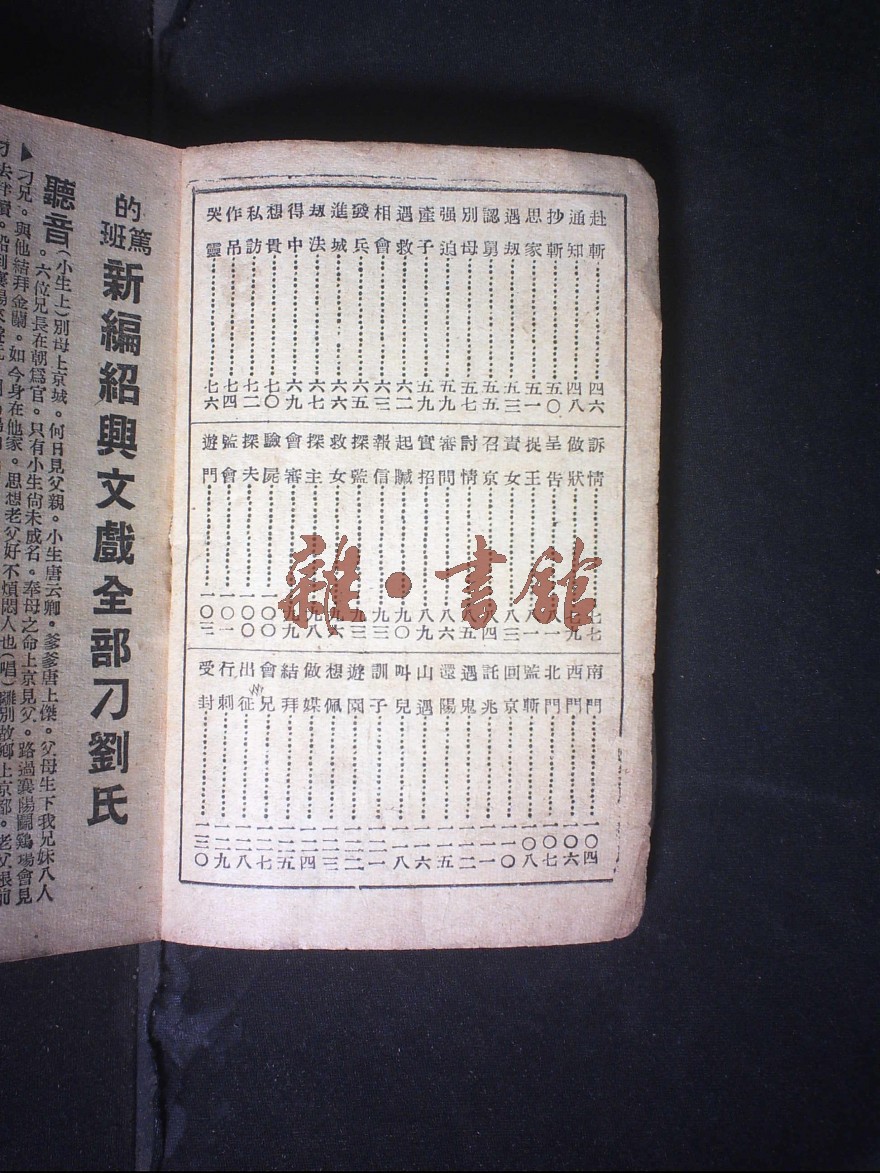 赴斬……四六
通知……四八
抄斬……五〇
思家……五一
遇刼……五三
認舅……五五
別母……五七
强迫……五九
產子……五九
遇救……六二
相會……六三
發兵……六五
進城……六六
刼法……六七
得中……六九
想貴……七〇
私訪……七二
作吊……七四
哭靈……七六
訴情……七七
做狀……七九
呈告……八一
捉王……八一
責女……八三
召京……八四
討情……八五
審問……八六
實招……八九
起贓……九〇
報信……九三
探監……九三
救女……九六
探主……九八
會審……九九
驗屍……一〇〇
探夫……一〇〇
監會……一〇一
遊門……一〇三
南門……一〇四
西門……一〇六
北門……一〇七
監斬……一〇八
回京……一一〇
託兆……一一一
遇鬼……一一二
還陽……一一五
山遇……一一六
叫兒……一一八
訓子……一二一
遊園……一二二
想佩……一二二
做媒……一二四
結拜……一二五
會兄……一二七
出征……一二八
行刺……一二九
受封……一三〇
的篤班新編紹興文戲全部刀劉氏
聽音(小生上)別母上京城。何日見父親。小生唐云卿。爹爹唐上傑。父母生下我兄妹八人
。六位兄長在朝爲官。只有小生尙未成名。奉母之命上京見父。路過襄陽鬭鷄塲會見
刁兄。與他結拜金蘭。如今身在他家。思想老父好不煩悶人也(唱)離別故鄉上京都。老父
雜·書館